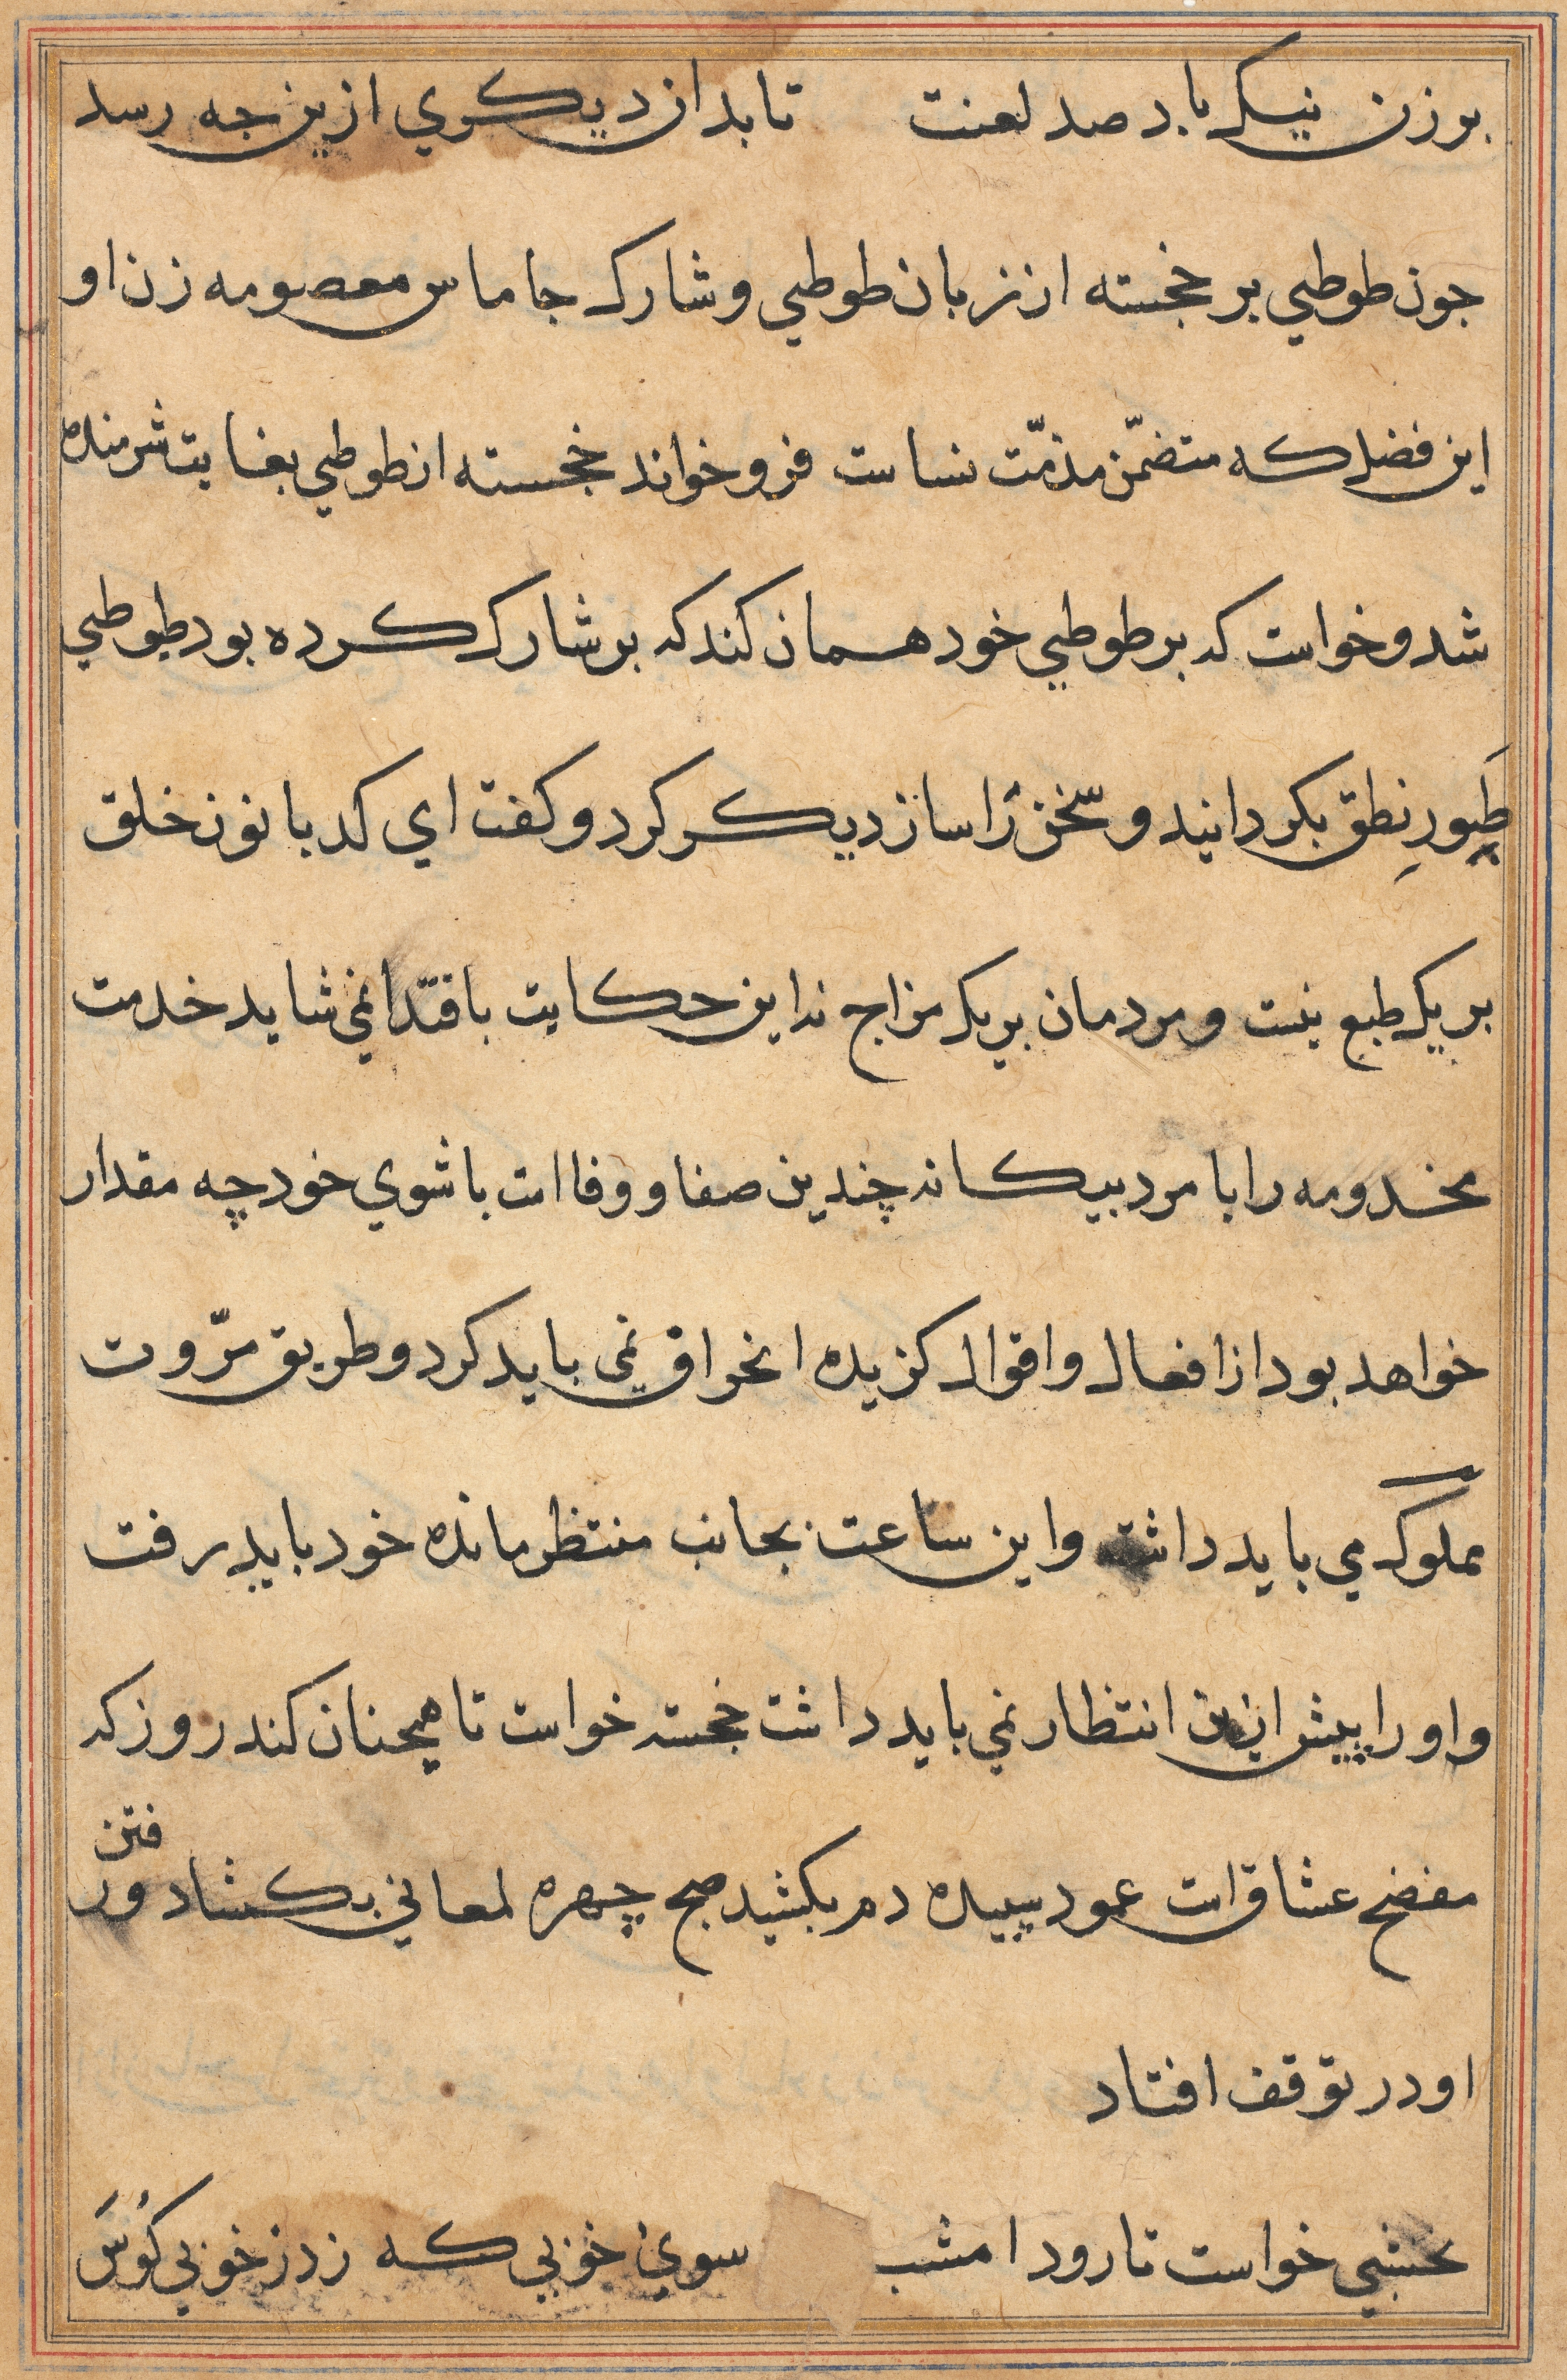 بر زن نیک باد صد لعنت تا بدان دیکري ازین جه رسد
جون طوطي بر خجسته از زبان طوطي و شارک جاماس معصومه زن او
این فضل که متضمّن مذمّت نساست فرو خواند خجسته از طوطي بغایت شرمنده
شد و خواست که بر طوطي خود همان کند که بر شارک کرده بود طوطي
طَیورِ نطق بکردانید و سخن را ساز دیکر کرد و کفت اي کدبانو ن خلق
بر یک طبع نیست و مردمان بر یک مزاج نه این حکایت باقتدا نمي شاید خدمت
مخدومه را با مرد بیکانه چندین صفا و وفا است با شوي خود چه مقدار
خواهد بود از افعال و اقوال کزیده انحراف نمي باید کرد و طریق مرّوت
مملوک مي باید داشت و این ساعت بجانب منتظر مانده خود باید رفت
و او را پیش ازین انتظار نمي باید داشت خجسته خواست تا همچنان کند روز که
مفضح عشاق است عمود سپیده دم بکشید صبح چهره لمعاني بکشاد و رفتن
او در توقف افتاد
نخشبي خواست تا رود امشب سوي خوبي که زد ز خوبي کُوسَ